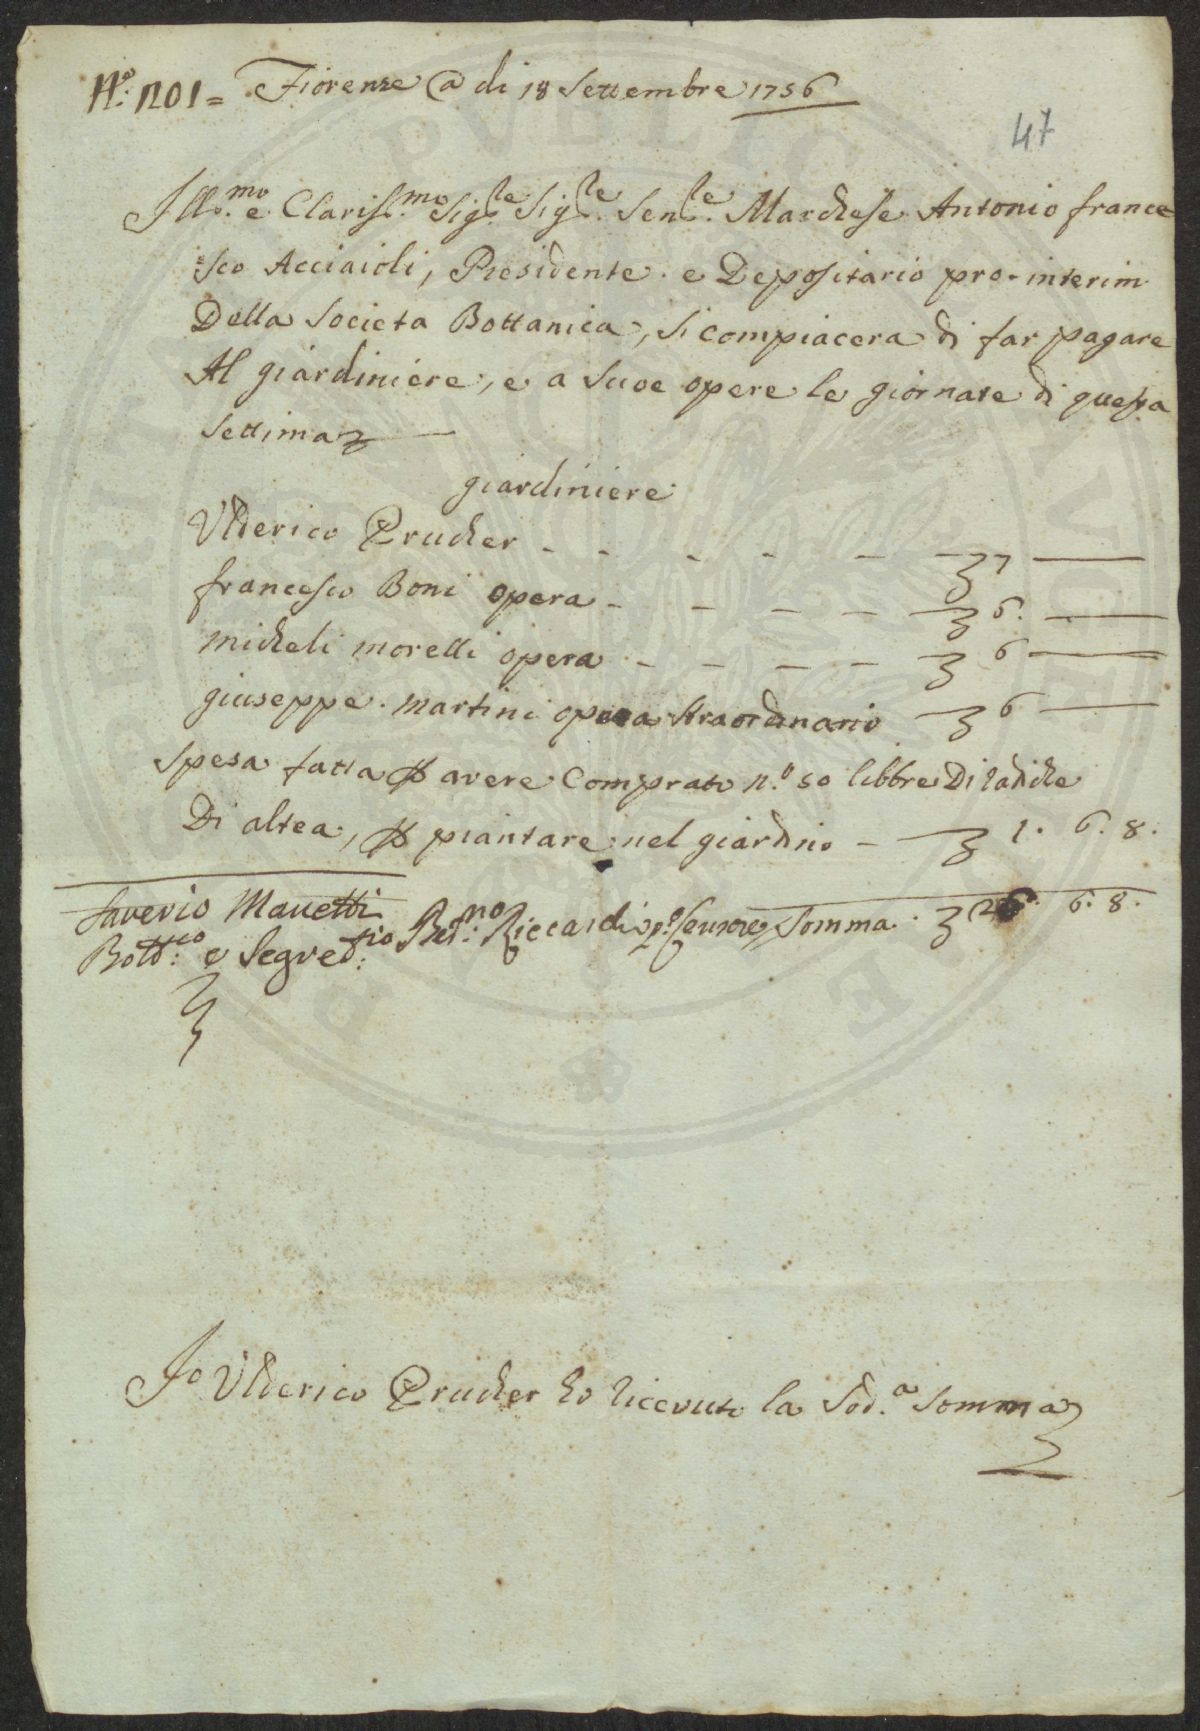 N.o 1201 = Fiorense @ di 18 Settembre 1756
47
Ill.mo e Clariss.mo Sig.re Sig.re Sen.re Marchese Antonio france
sco Acciaioli, Presidente e Depositario pro-interim
Della Societa Bottanica, si compiacera di far pagare
Al giardiniere, e a suoe opere le giornate di questa
settima
giardiniere
Ulderico Prucher - - - - - - 7 —
francesco Boni opera - - - - 6. —
micheli morelli opera - - - - 6 —
giuseppe martini opera straordinario 6 —
spesa fatta p avere Comprato n.o 50 libbre Di radiche
Di altea, p piantare nel giardino - 1. 6. 8.
Saverio Manetti
Bott.co e Segret.rio Ber.no Riccardi p.o Censore Somma. 26. 6. 8.
Io Ulderico Prucher ho ricevuto la Sod.a Somma